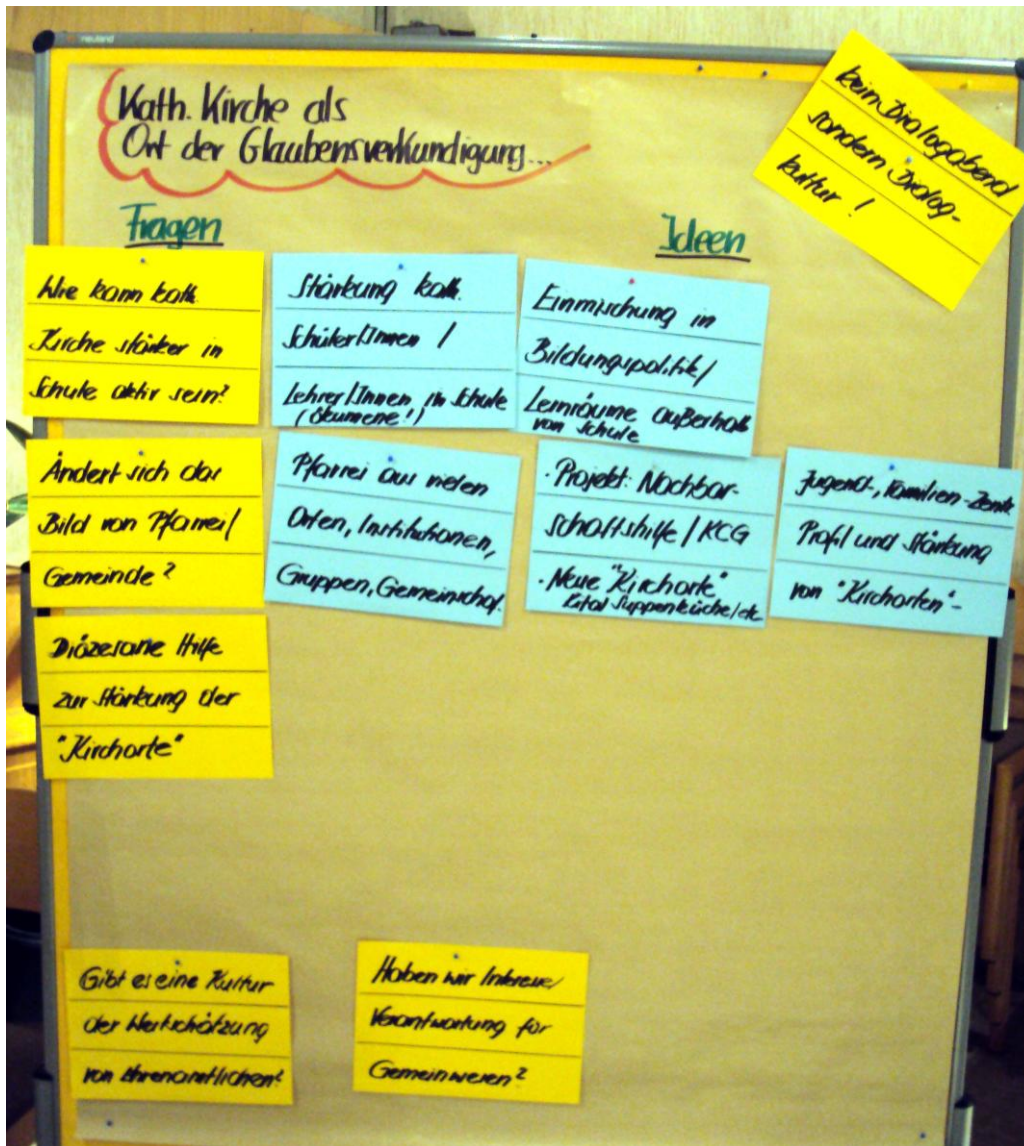 neuland
Kath. Kirche als
Ort der Glaubensverkündigung...
kein Dialogabend
sondern Dialog-
kultur !
Fragen
Ideen
Wie kann kath.
Kirche stärker in
Schule aktiv sein?
Stärkung kath.
Schüler/Innen /
Lehrer/Innen in Schule
(Ökumene!)
Einmischung in
Bildungspolitik/
Lernräume außerhalb
von Schule
Ändert sich das
Bild von Pfarrei/
Gemeinde?
Pfarrei aus vielen
Orten, Institutionen,
Gruppen, Gemeinschaf.
· Projekt: Nachbar-
schaftshilfe / KCG
· Neue "Kirchorte"
Kita/ Suppenküche/etc
Jugend-, Familien-Zentr.
Profil und Stärkung
von "Kirchorten"-
Diözesane Hilfe
zur Stärkung der
"Kirchorte"
Gibt es eine Kultur
der Wertschätzung
von Ehrenamtlichen?
Haben wir Interesse/
Verantwortung für
Gemeinwesen?